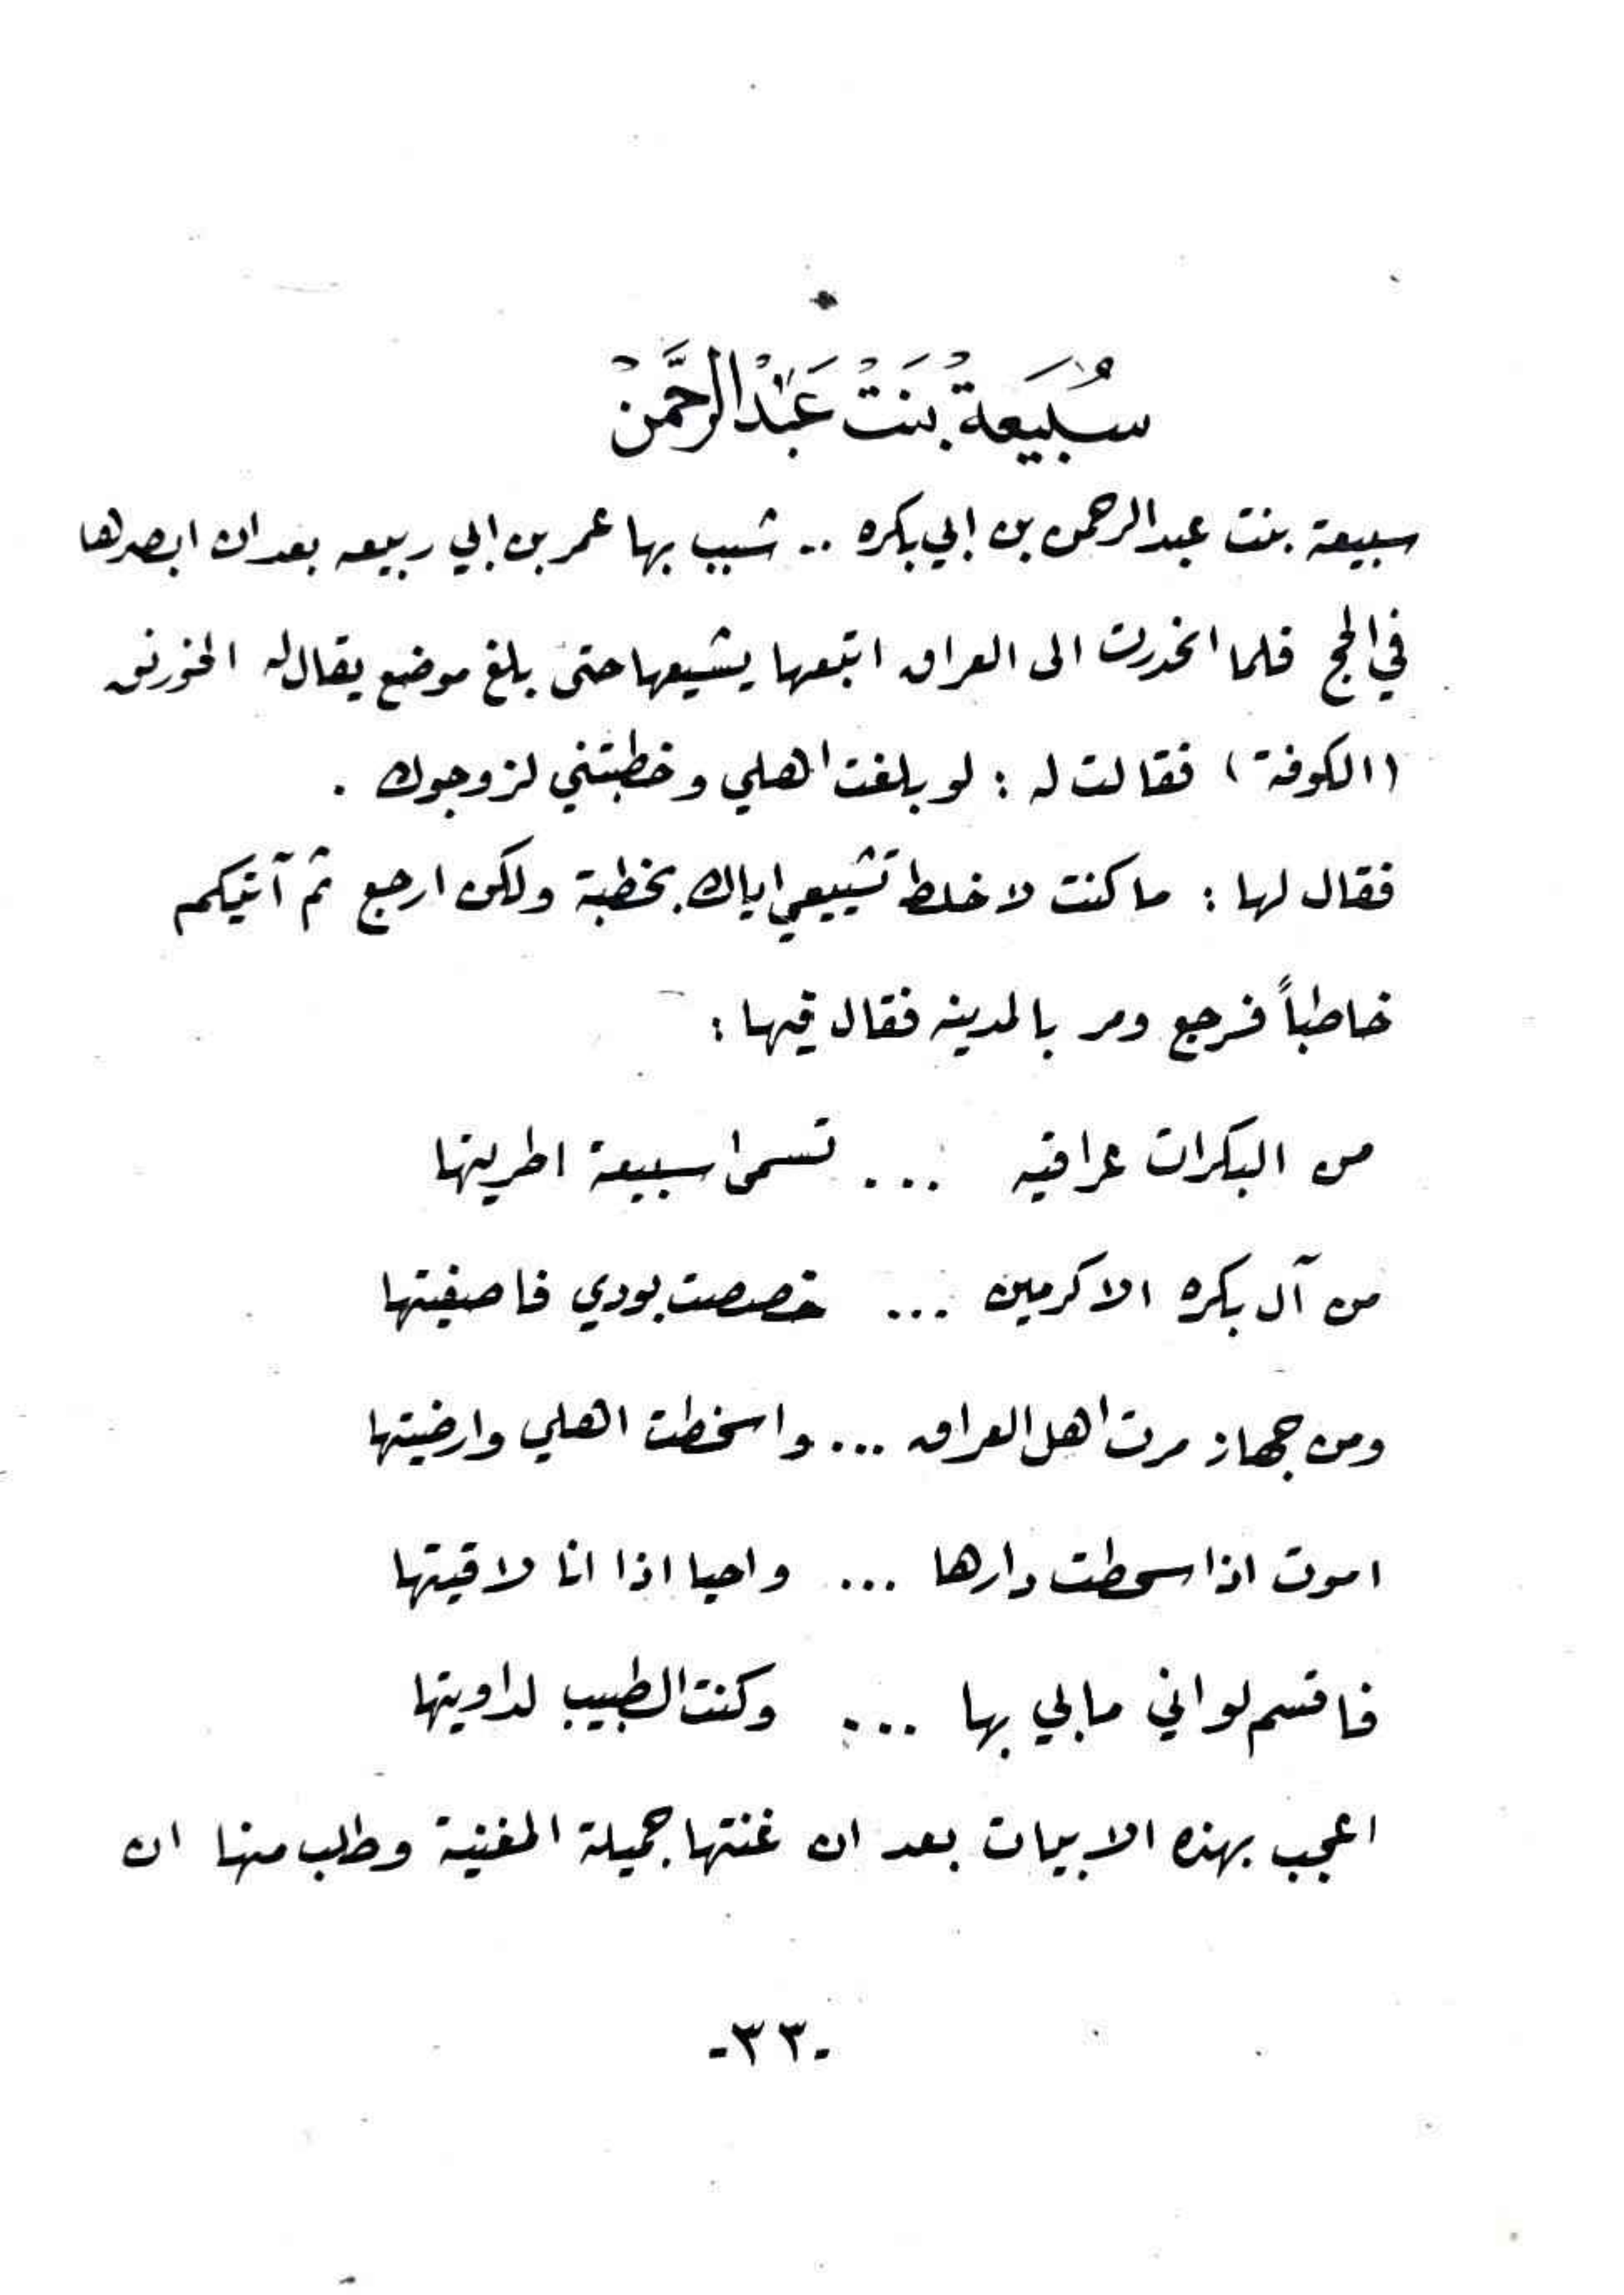 سُبَيعَةُ بنَتْ عَبْدُالرَّحمَنْ
سبيعة بنت عبدالرحمن بن ابي بكره .. شبب بها عمر بن ابي ربيعه بعد ان ابصرها
في الحج فلما انحدرت الى العراق اتبعها يشيعها حتى بلغ موضع يقال له الخورنق
(الكوفة) فقالت له : لو بلغت اهلي وخطبتني لزوجوك .
فقال لها : ما كنت لاخلط تشييعي اياك بخطبة ولكن ارجع ثم آتيكم
خاطباً فرجع ومر بالمدينه فقال فيها :
من البكرات عراقيه ... تسمى سبيعة اطريتها
من آل بكره الاكرمين ... خصصت بودي فاصفيتها
ومن جهاز مرت اهل العراق ... واسخطت اهلي وارضيتها
اموت اذا سحطت دارها ... واحيا اذا انا لاقيتها
فاقسم لو اني مابي بها ... وكنت الطبيب لداويتها
اعجب بهذه الابيات بعد ان غنتها جميلة المغنية وطلب منها ان
-٣٣-